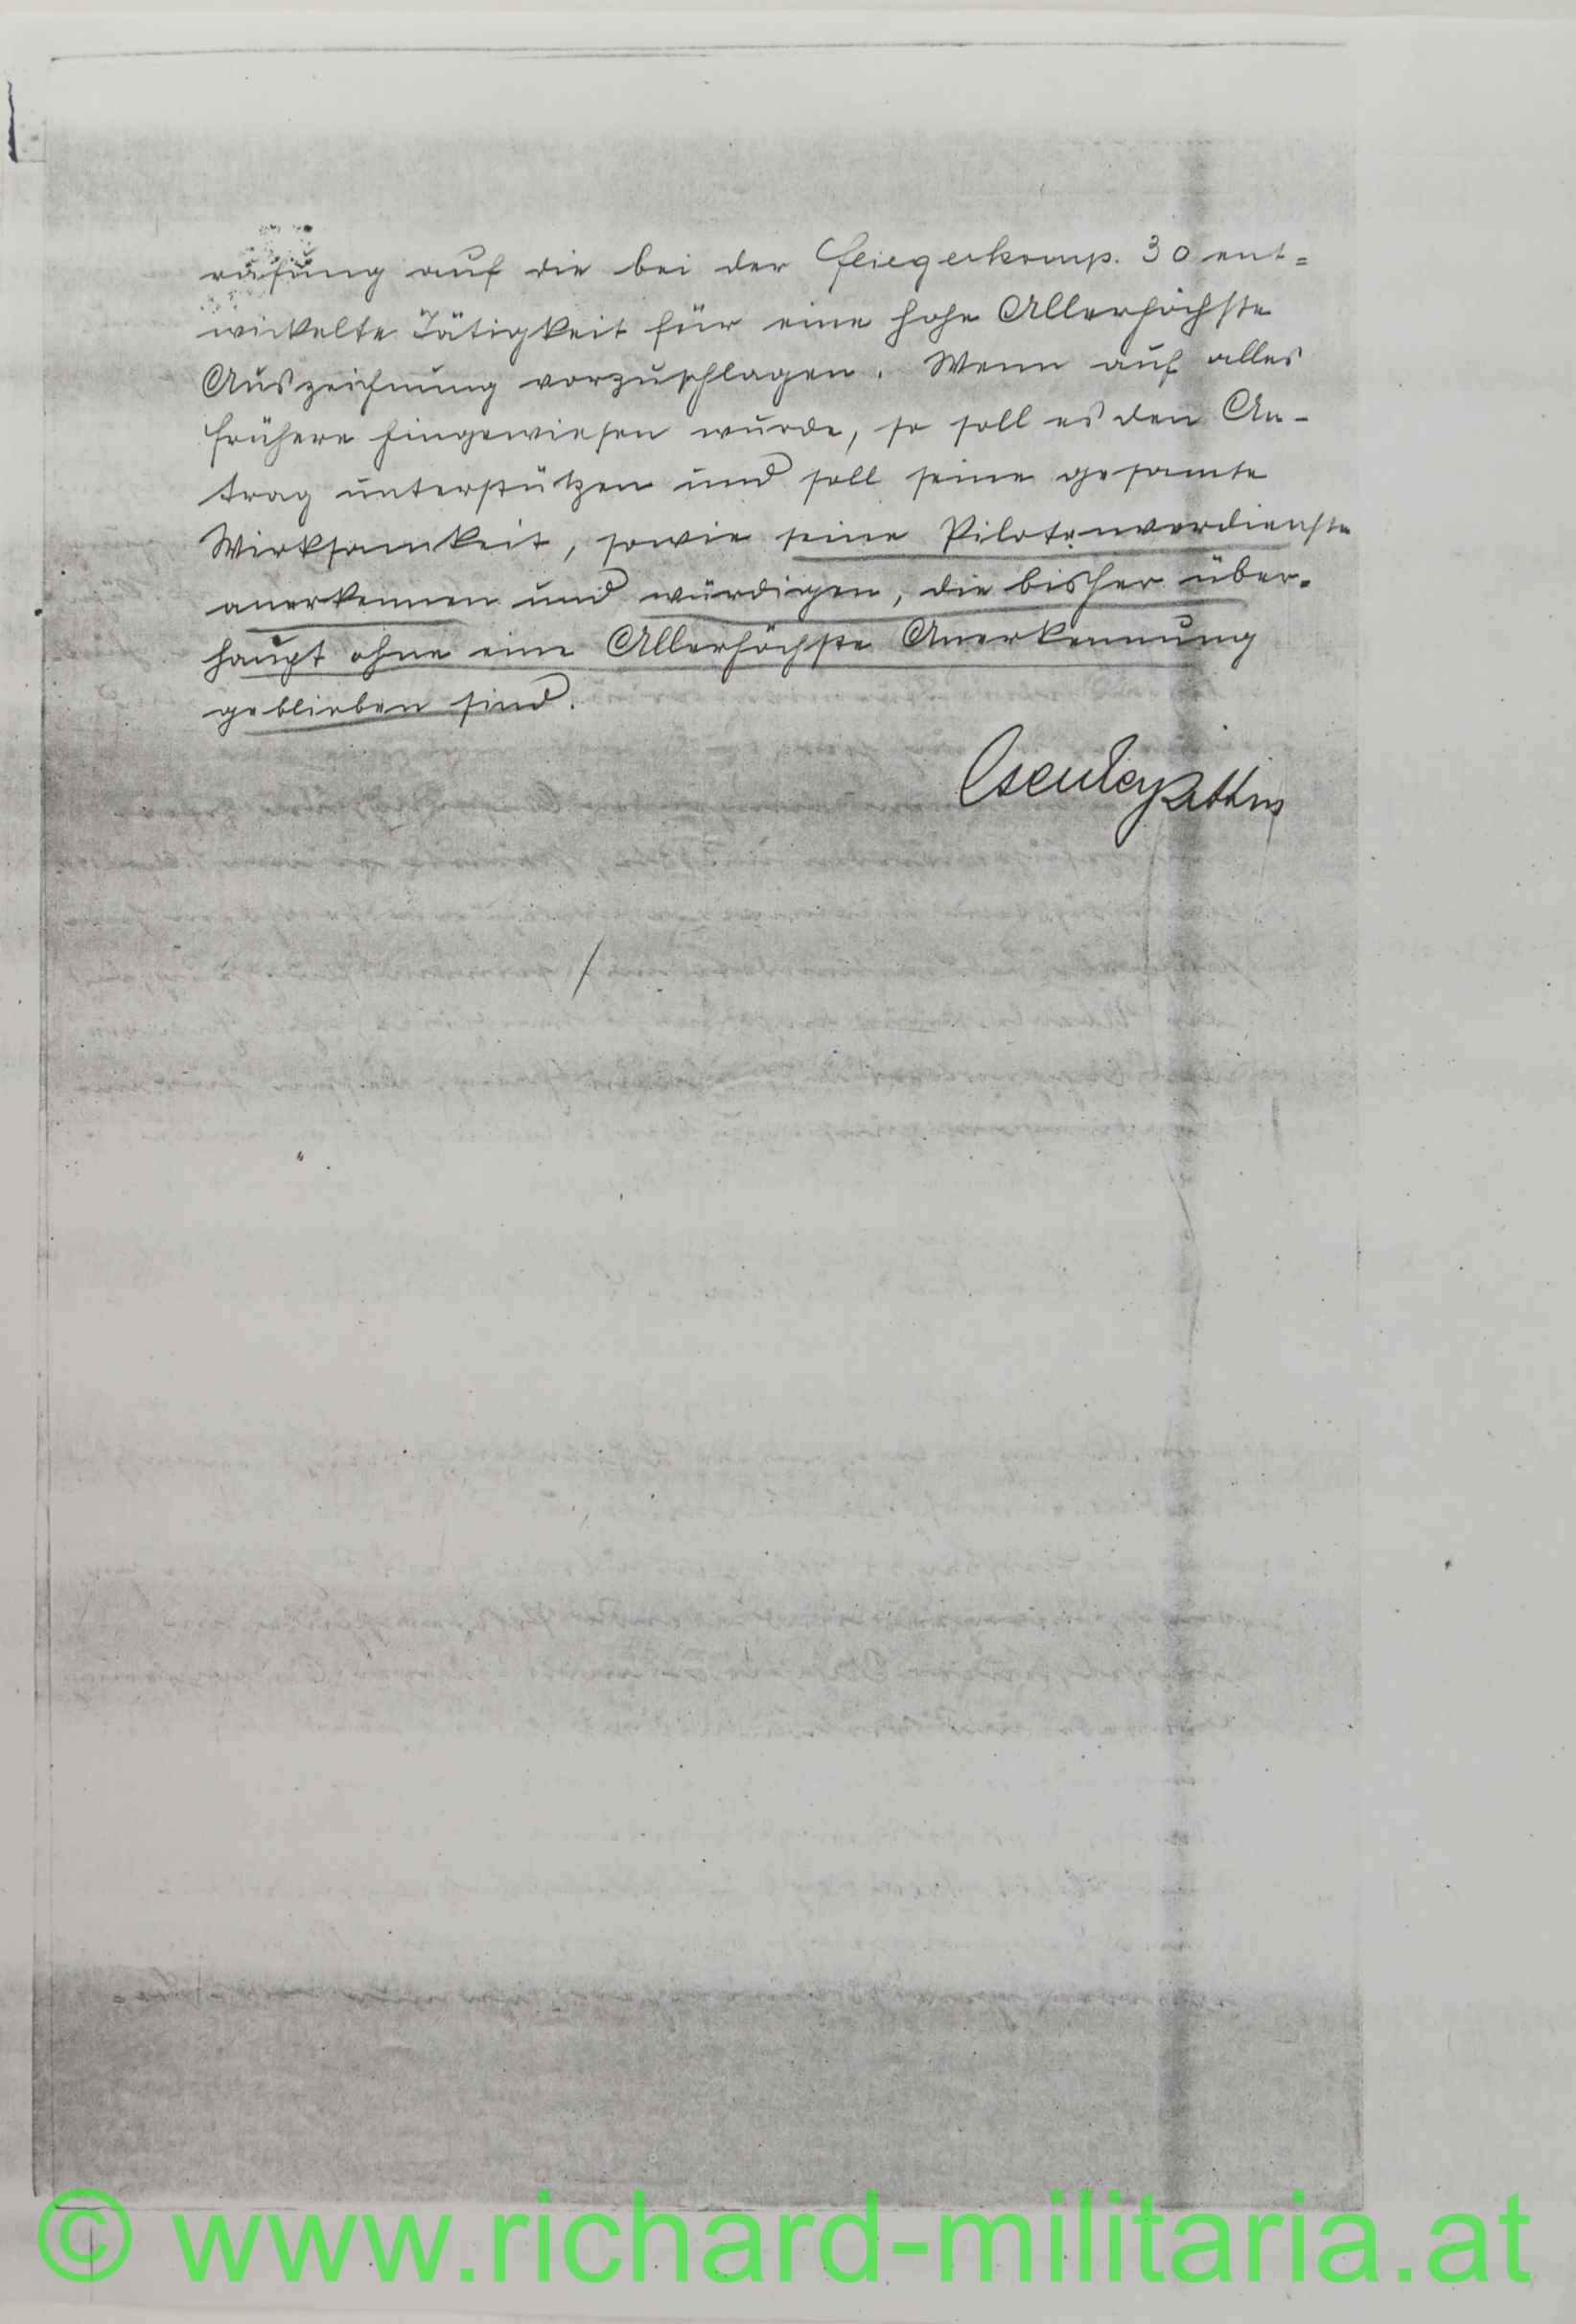 auf die bei der Fliegerkomp. 30 ent=
wickelte Tätigkeit für eine hohe Allerhöchste
Auszeichnung vorzuschlagen. Wenn auf alles
frühere hingewiesen wurde, so soll es den An-
trag unterstützen und soll seine gesamte
Wirksamkeit, sowie seine Pilotenverdienste
anerkennen und würdigen, die bisher über-
haupt ohne eine Allerhöchste Anerkennung
geblieben sind.
© www.richard-militaria.at